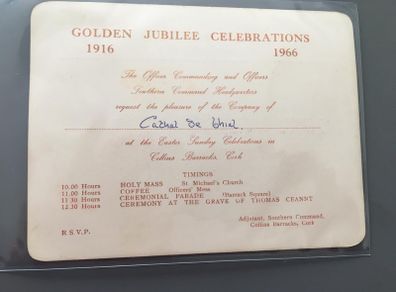 GOLDEN JUBILEE CELEBRATIONS
1916 1966
The Officer Commanding and Officers
Southern Command Headquarters
request the pleasure of the Company of
Cathal
at the Easter Sunday Celebrations in
Collins Barracks, Cork
TIMINGS
10.00 Hours HOLY MASS St Michael's Church
11.00 Hours COFFEE Officers' Mess
11.30 Hours CEREMONIAL PARADE (Barrack Square)
12.30 Hours CEREMONY AT THE GRAVE OF THOMAS CEANNT
Adjutant, Southern Command,
R.S.V.P. Collins Barracks, Cork